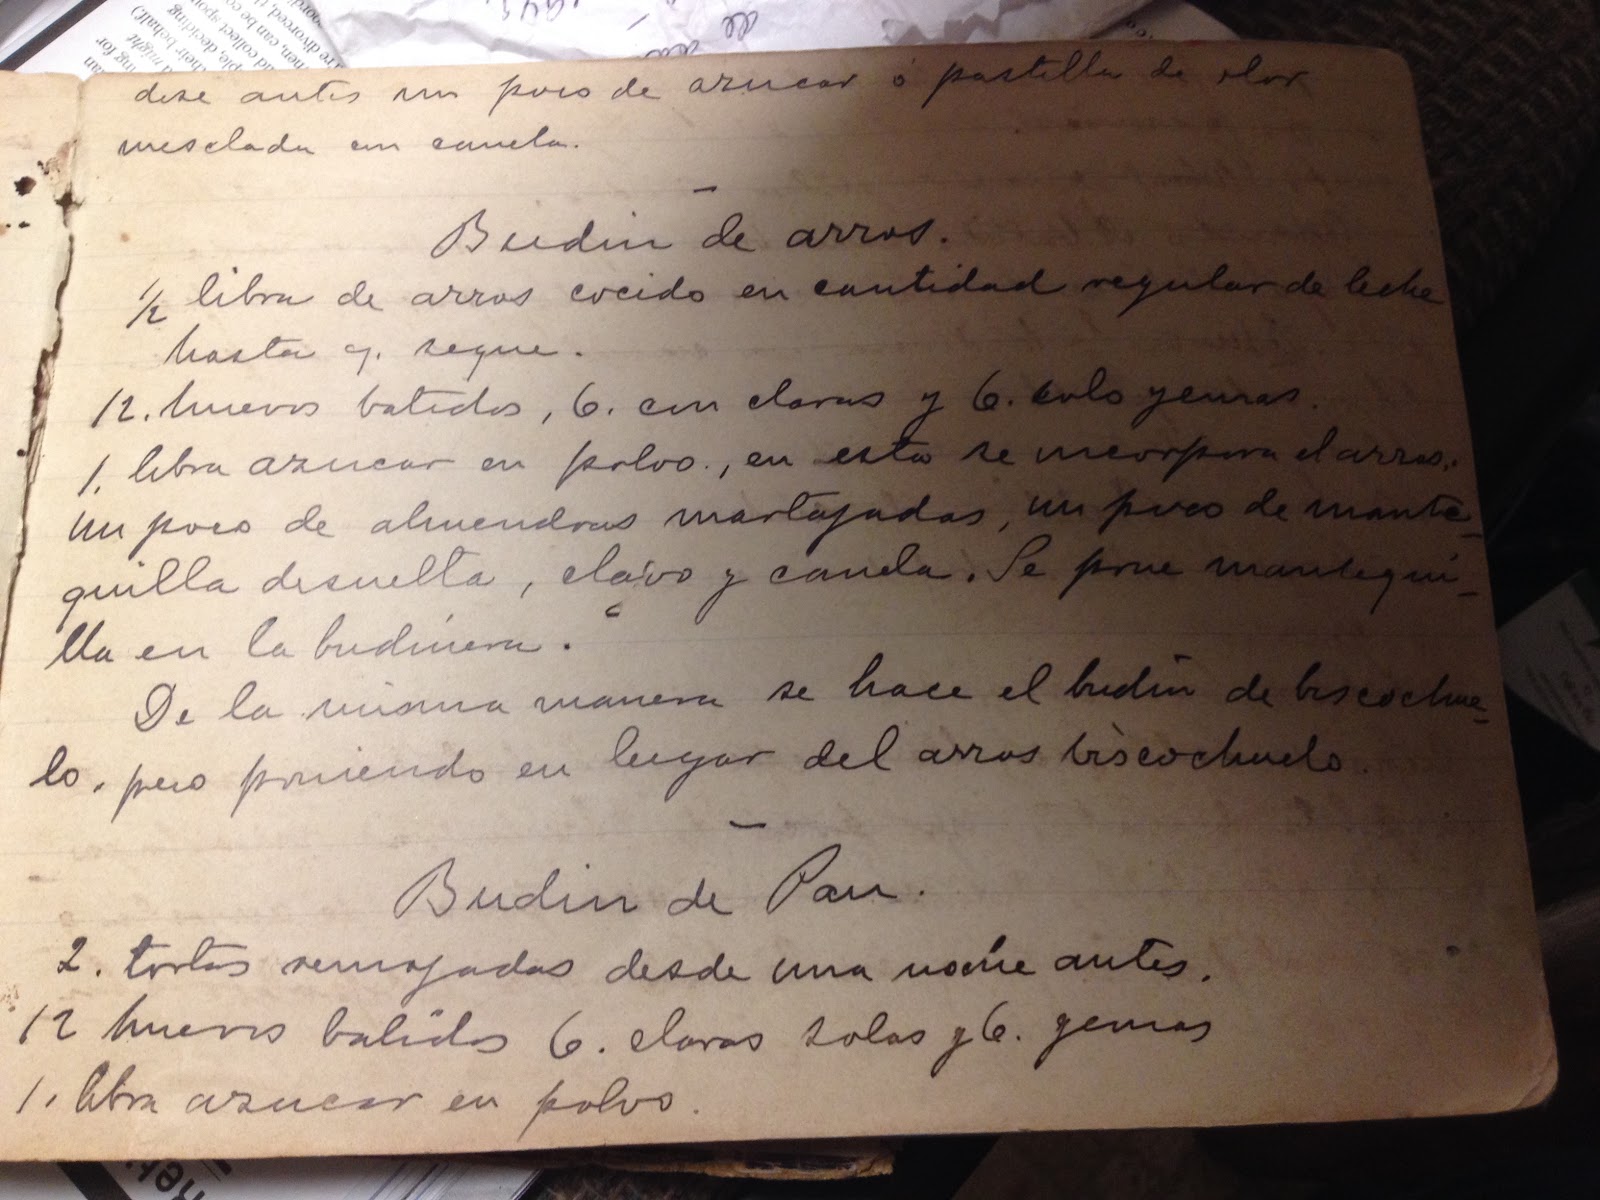 dose antes un poco de azucar ó pastilla de olor
mesclada con canela.
Budin de arros.
1/2 libra de arros cocido en cantidad regular de leche
hasta q. seque.
12. huevos batidos, 6. con claras y 6. solo yemas.
1. libra azucar en polvo., en esto se incorpora el arros,.
un poco de almendras martajadas, un poco de mante-
quilla desuelta, clavo y canela. Se pone mantequi-
lla en la budinera.
De la misma manera se hace el budin de biscochue-
lo, pero poniendo en lugar del arros biscochuelo.
Budin de Pan.
2. tortas remojadas desde una noche antes.
12 huevos batidos 6. claras solas y 6. yemas
1. libra azucar en polvo.